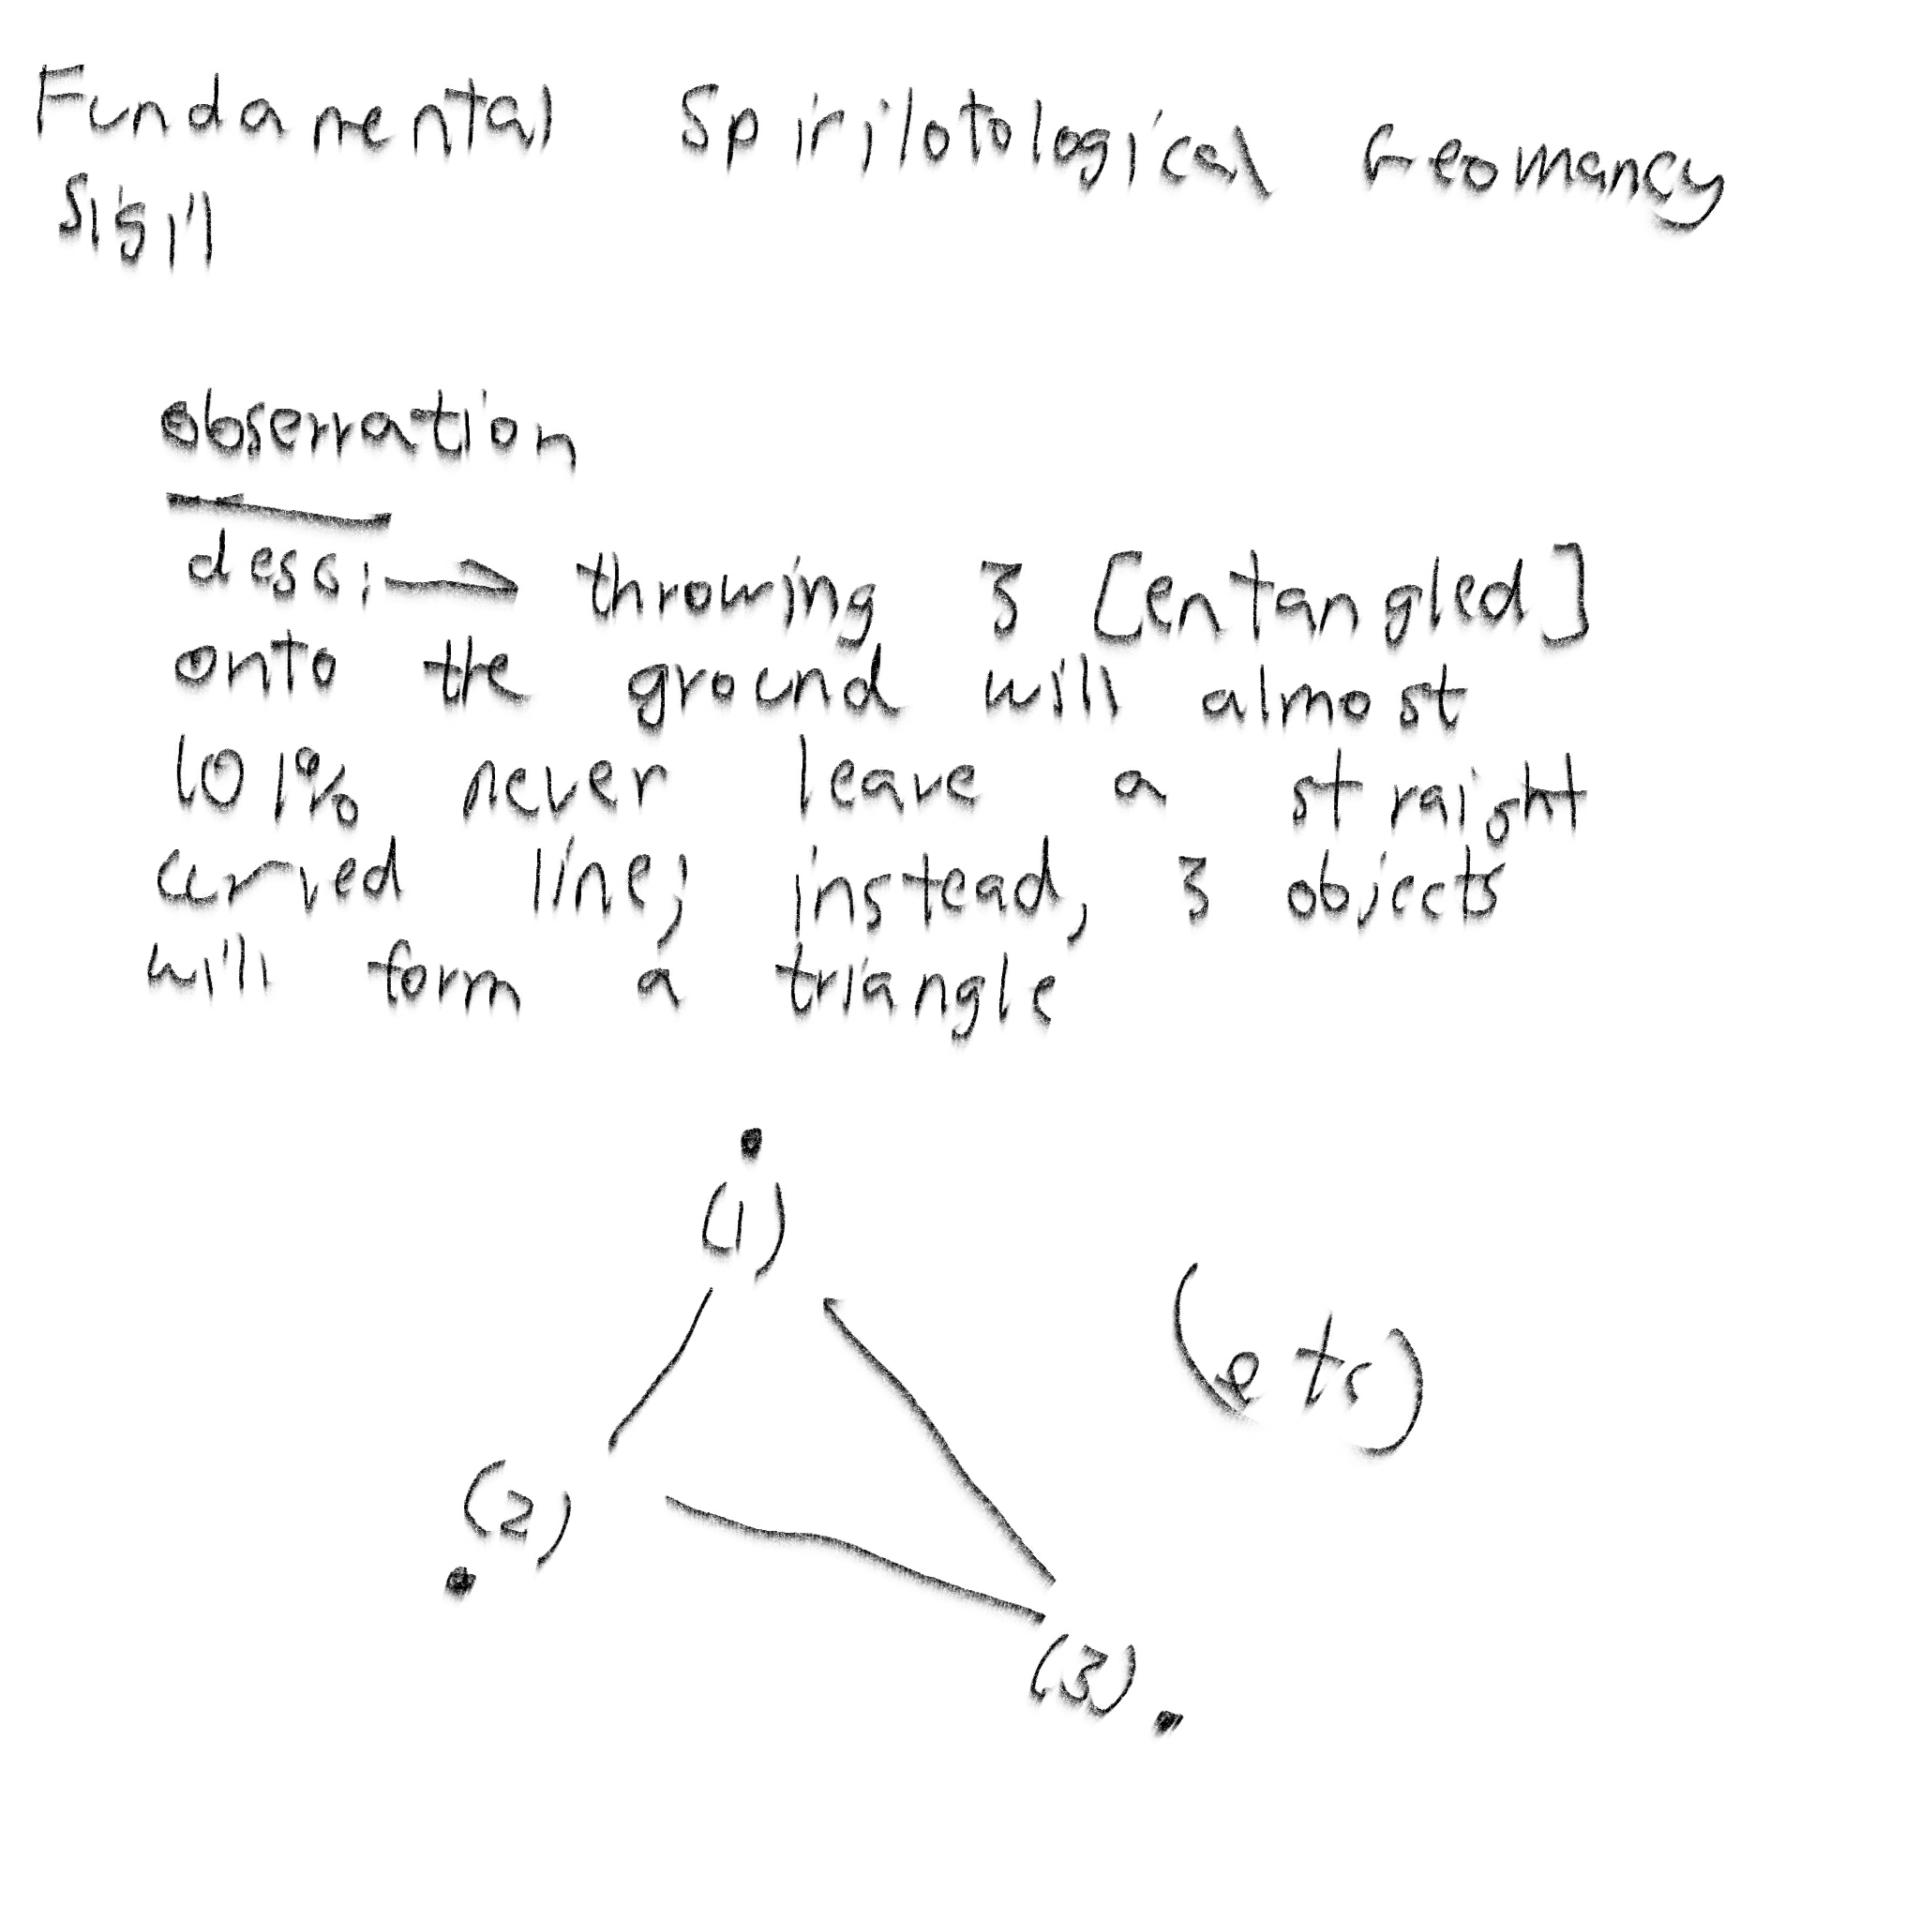 Fundamental Spirilotological Geomancy
Sigil
observation
desc: → throwing 3 [entangled]
onto the ground will almost
101% never leave a straight
curved line; instead, 3 objects
will form a triangle
(1)
(etc)
(2)
(3).